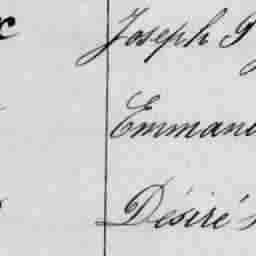 Joseph
Emman
Désiré